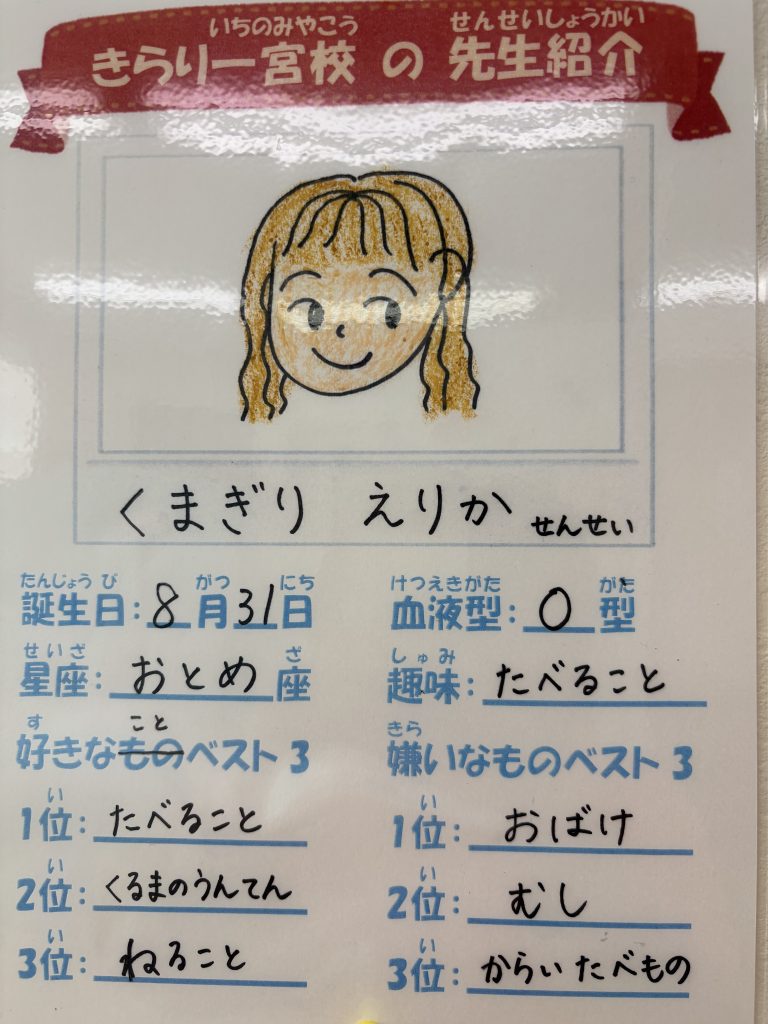 いちのみやこう せんせいしょうかい
きらり一宮校 の 先生紹介
くまぎり えりか せんせい
たんじょう び がつ にち
誕生日:8月31日
けつえきがた がた
血液型:O型
せいざ ざ
星座:おとめ座
しゅみ
趣味:たべること
す こと
好きなものベスト3
い
1位:たべること
い
2位:くるまのうんてん
い
3位:ねること
きら
嫌いなものベスト3
い
1位:おばけ
い
2位:むし
い
3位:からいたべもの